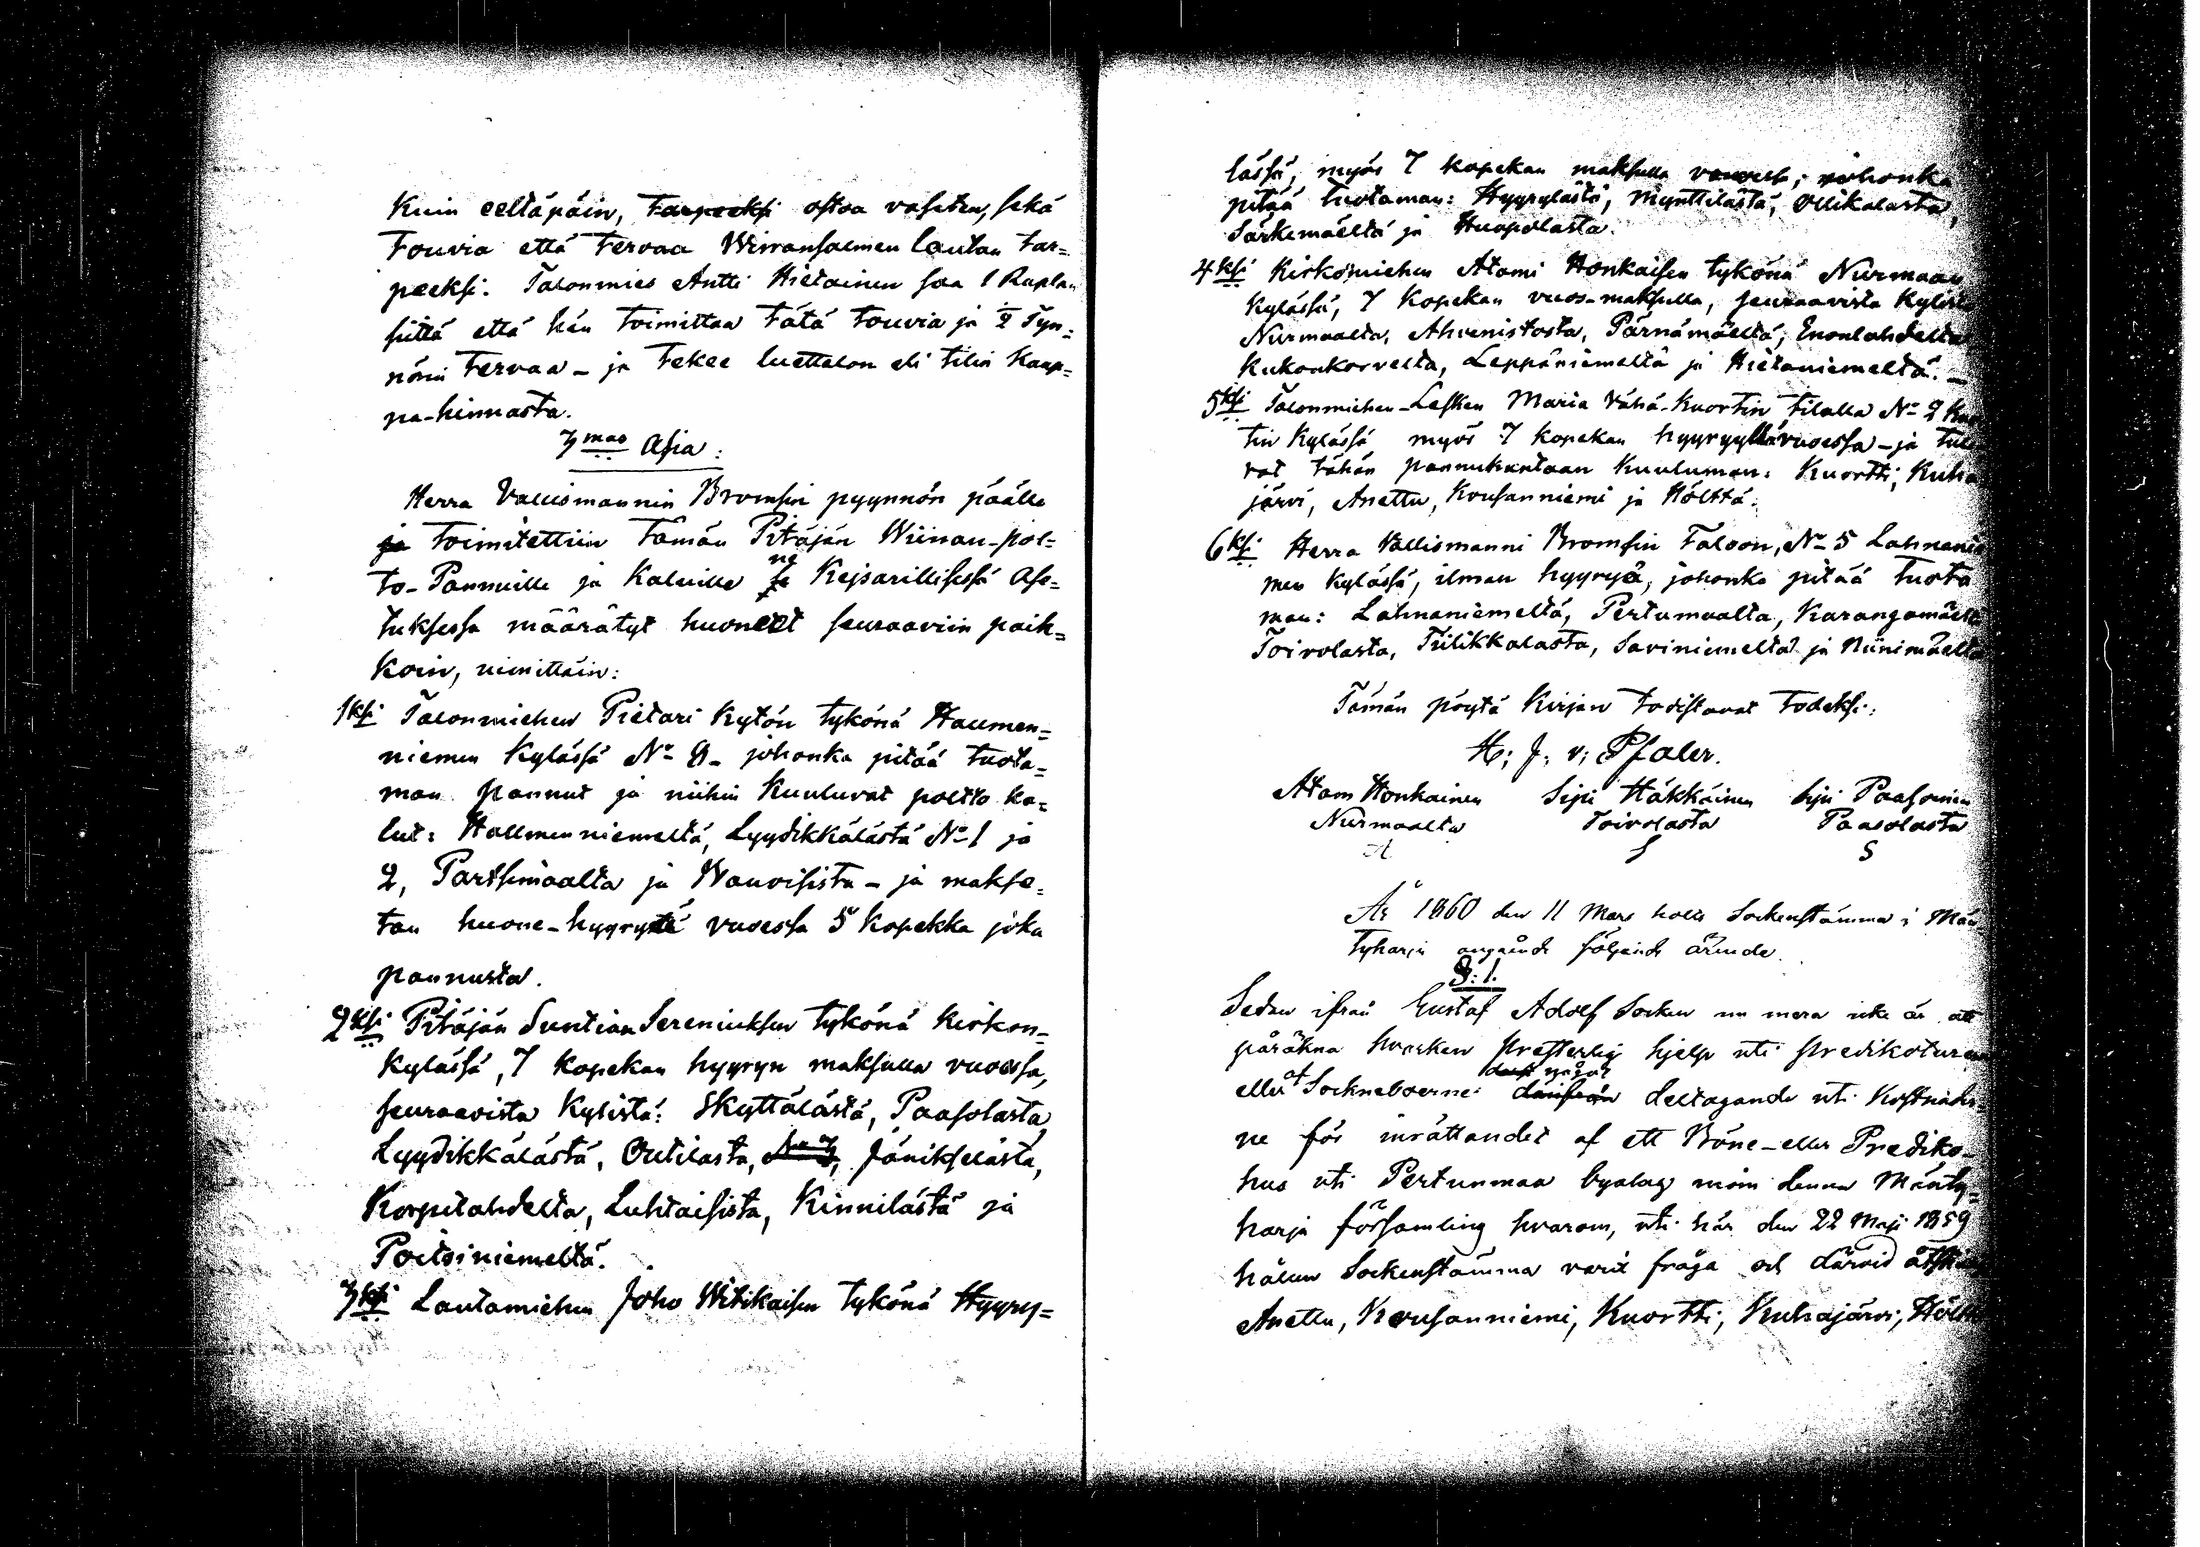 Kuin eeltäpäin, tarpeeksi ostaa vaseten, sekä
Touvia että Tervaa Wirransalmen lautan tar=
peeksi. Talonmies Antti Hietainen saa 1 Ruplan
siitä että hän toimittaa tätä touvia ja ½ Tyn=
nöriä Tervaa – ja tekee luettelon eli tilin kaup=
pa-hinnasta.
3mas Asia:
Herra Vallismannin Bromsin pyynnön päälle
ja toimitettiin tämän Pitäjän Wiinan-pol=
to-Pannuille ja Kaluille ne Kejsarillisessä Ase=
tuksessa määrätyt huoneet seuraaviin paik=
koin, nimittäin:
1ksi Talonmiehen Pietari Kytön tykönä Haumen=
niemen Kylässä No 8 – johonka pitää tuota=
man pannut ja niihin Kuuluvat poltto ka=
lut: Hallmenniemeltä, Lyydikkälästä No 1 ja
2, Partsimaalta ja Wanvisista – ja makse=
tan huone-hyyryä vuoessa 5 Kopekka joka
pannusta.
2ksi Pitäjän Suntian Sereniuksen tykönä Kirkon=
Kylässä, 7 Kopekan hyyryn maksulla vuoessa,
seuraavista Kylistä: Skyttälästä, Paasolasta,
Lyydikkälästä, Outilasta, No 3, Jänikselästä,
Korpilahdelta, Luhtaisista, Kinnilästä ja
Poitsiniemeltä.
3ksi Lautamiehen Joho Witikaisen tykönä Hyyry=
lässä, myös 7 kopekan maksulla vuoessa; johonka
pitää tuotaman: Hyyrylästä, Mynttilästä, Ollikalasta,
Särkemäeltä ja Huopolasta.
4ksi Kirkomiehen Atami Honkaisen tykönä Nurmaan
Kylässä, 7 Kopekan vuos-maksulla, seuraavista Kylistä
Nurmaalta, Ahvenistosta, Pärnämäeltä, Enonlahdelta
Kukonkorvelta, Leppäniemeltä ja Hietaniemeltä. –
5ksi Talonmiehen-Lesken Maria Vähä-Kuortin tilalla No 2 Kuor
tin Kylässä myös 7 kopekan hyyryllä vuoessa – ja tule
vat tähän pannukuntaan Kuuluman: Kuortti, Kuha
järvi, Anettu, Kousanniemi ja Höltta.
6ksi Herra Vallismanni Bromsin Taloon, No 5 Lahnanie
men Kylässä, ilman hyyryä, johonka pitää tuota
man: Lahnaniemeltä, Pertumaalta, Karangomäeltä
Toivolasta, Tiilikkalasta, Saviniemeltä ja Niinimäeltä
Tämän pöytä Kirjan todistavat todeksi:
H: J: v: Pfaler.
Atam Honkainen Sipi Häkkäinen Sipi Paasoinen
Nurmaalta Toivolasta Paasolasta
A S S
År 1860 den 11 Mars holls Sockenstämma i Män
tyharju angående följande ärende.
§: 1.
Sedan ifrån Gustaf Adolf Socken nu mera icke är att
påräkna hvarken presterlig hjelp uti predikoturen
något
eller af Sockneboerne däraf deltagande uti Kostnader
ne för inrättandet af ett Böne- eller Prediko-
hus uti Pertunmaa byalag inom denna Mänty=
harju församling hvarom, uti här den 22 Maji 1859
hållen Sockenstämma varit fråga och därvid
Anettu, Kousanniemi, Kuortti, Kuhajärvi, Höltt